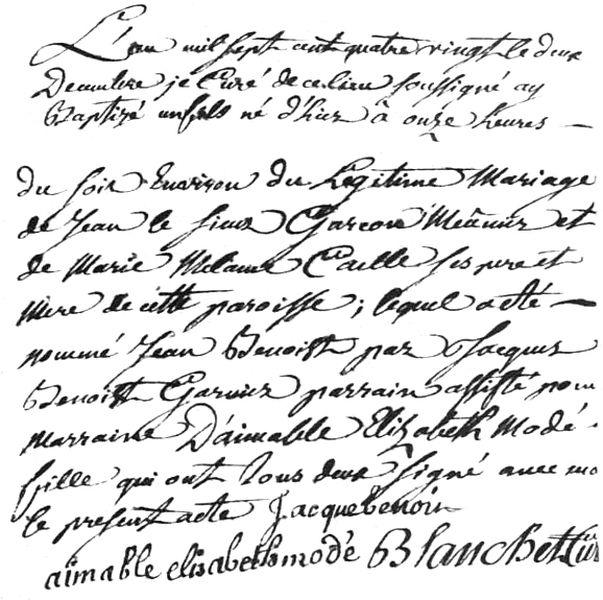 L'an mil sept cent quatre vingt le deux
Decembre je Curé de ce lieu soussigné ay
Baptizé un fils né d'hier â onze heures —
du soir Environ du Légitime Mariage
de Jean le sieur Garcon Meûnier et
de Marie Melanie Caille ses pere et
Mere de cette paroisse ; lequel a eté —
nommé Jean Benoist par Jacques
Benoist Garnier parrain assisté pour
marraine D'aimable Elizabeth Modé
fille qui ont tous deux signé avec mo
le present acte Jacquebenoir
aimable elisabeth modé Blanchet Cur